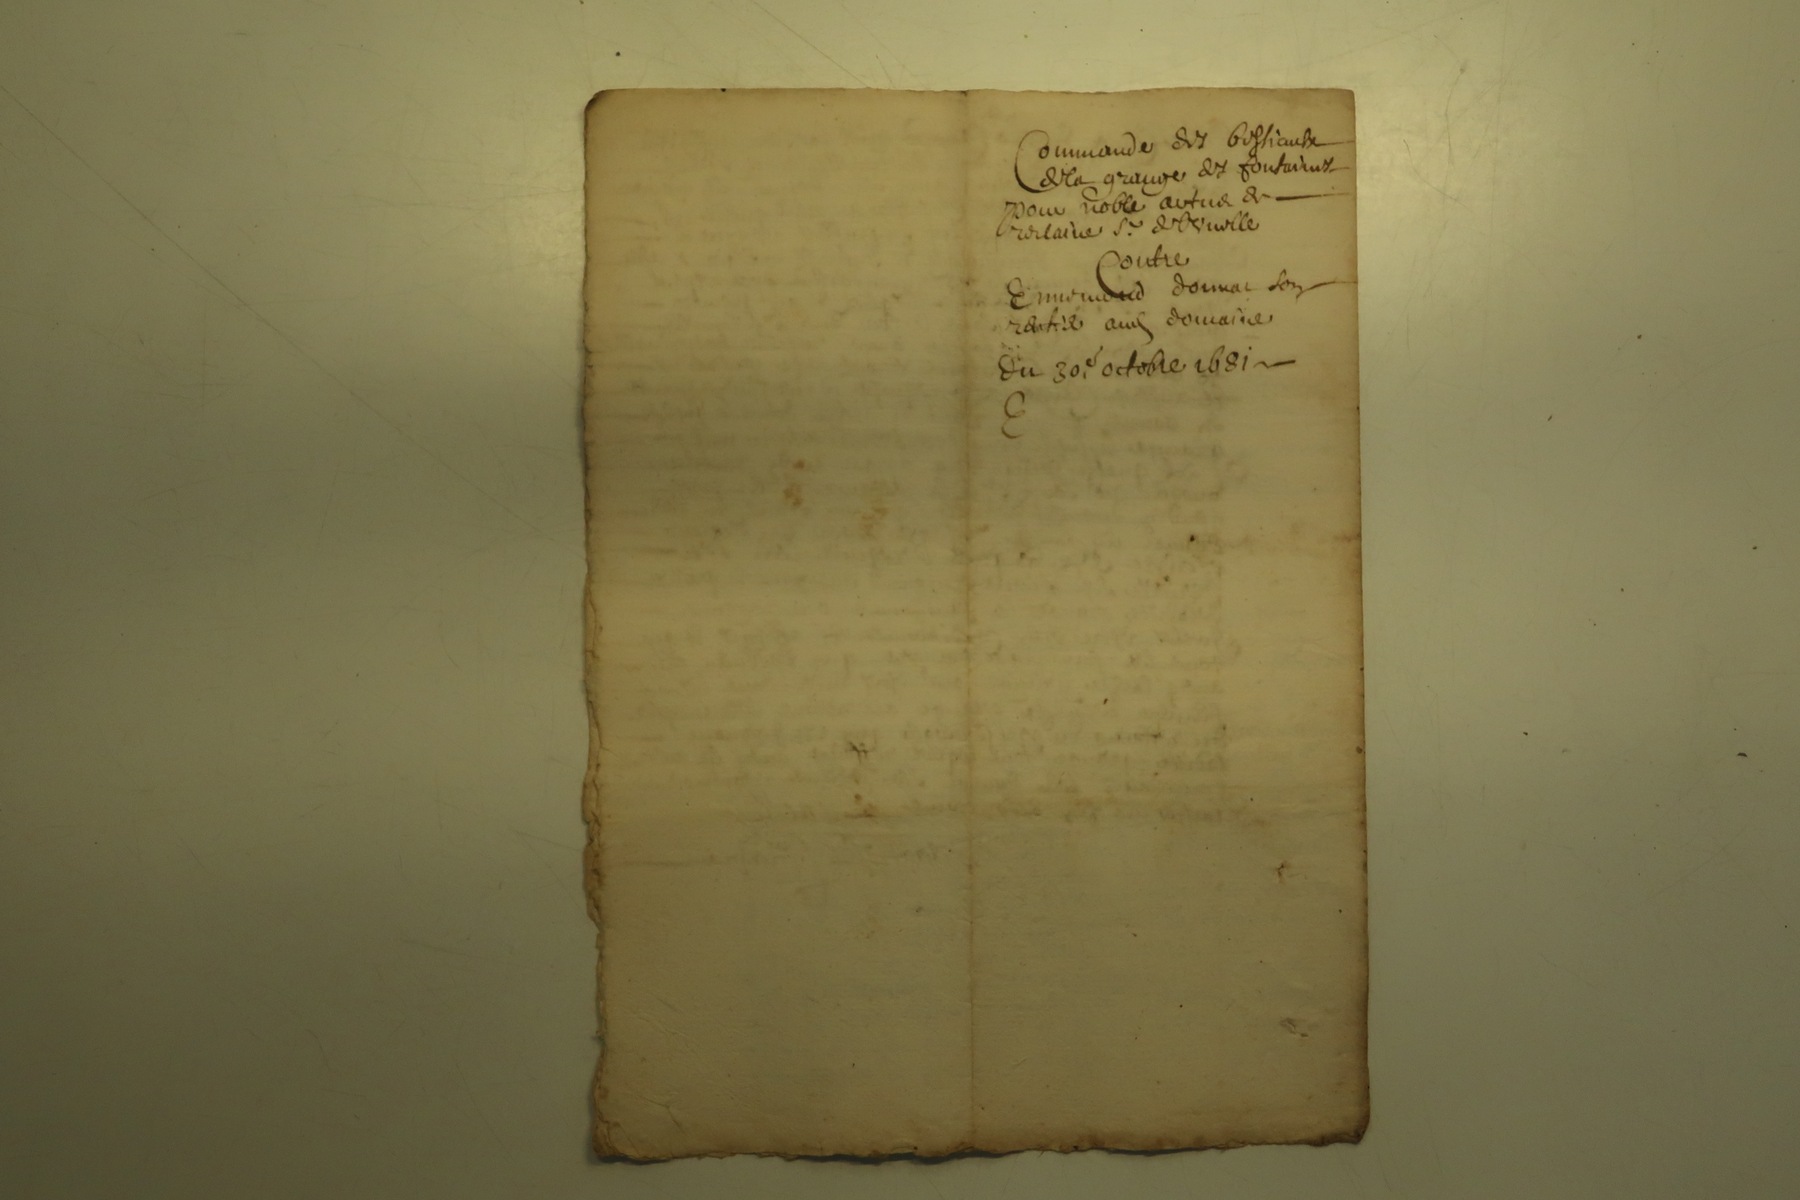 Commande des bestiaulx
dela grange des fontaines
pour noble artus de
Sr
Contre
Ennemond donnat son
rentier aud domaine
Du 30e octobre 1681
E